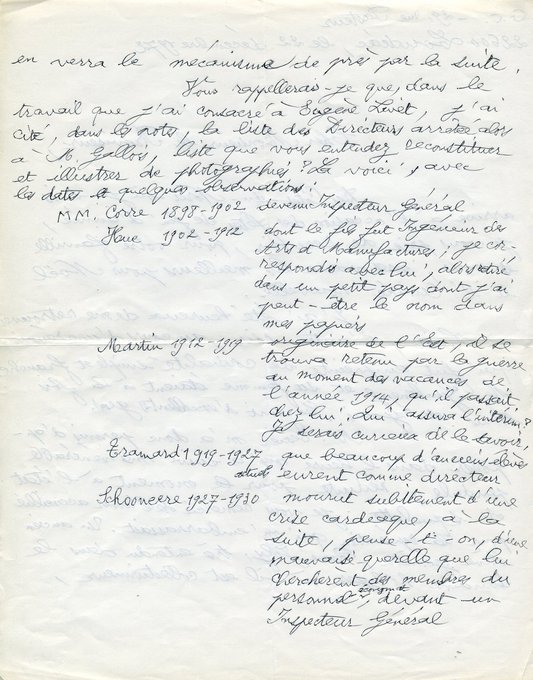 en verra le mécanisme de près par la suite.
Vous rappellerais-je que, dans le
travail que j'ai consacré à Eugène Livet, j'ai
cité, dans les notes, la liste des Directeurs arrêtée alors
à M. Gallois, liste que vous entendez reconstituer
et illustrer de photographies? La voici, avec
les dates et quelques observations:
MM. Corre 1898-1902 devenu Inspecteur Général
Haue 1902-1912 dont le fils fut Ingénieur des
Arts et Manufactures; je cor-
respondis avec lui, alors retiré
dans un petit pays dont j'ai
peut-être le nom dans
mes papiers
Martin 1912-1919 originaire de l'Est, il se
trouva retenu par la guerre
au moment des vacances de
l'année 1914, qu'il passait
chez lui. Qui assura l'intérim?
Je serais curieux de le savoir,
Tramard 1919-1927 que beaucoup d'anciens élèves
eurent comme directeur
Schooneere 1927-1930 mourut subitement d'une
crise cardiaque, à la
suite, pense-t-on, d'une
mauvaise querelle que lui
cherchèrent des membres du
personnel, devant un
Inspecteur Général